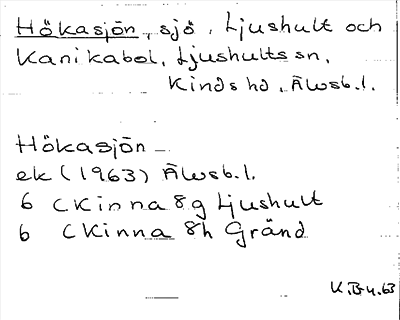 Hökasjön, sjö, Ljushult och
Kanikabol, Ljushults sn,
Kinds hd, Älvsb.l.
Hökasjön
ek (1963) Älvsb.l.
6 CKinna 8g Ljushult
6 CKinna 8h Gränd
K.Br4.63